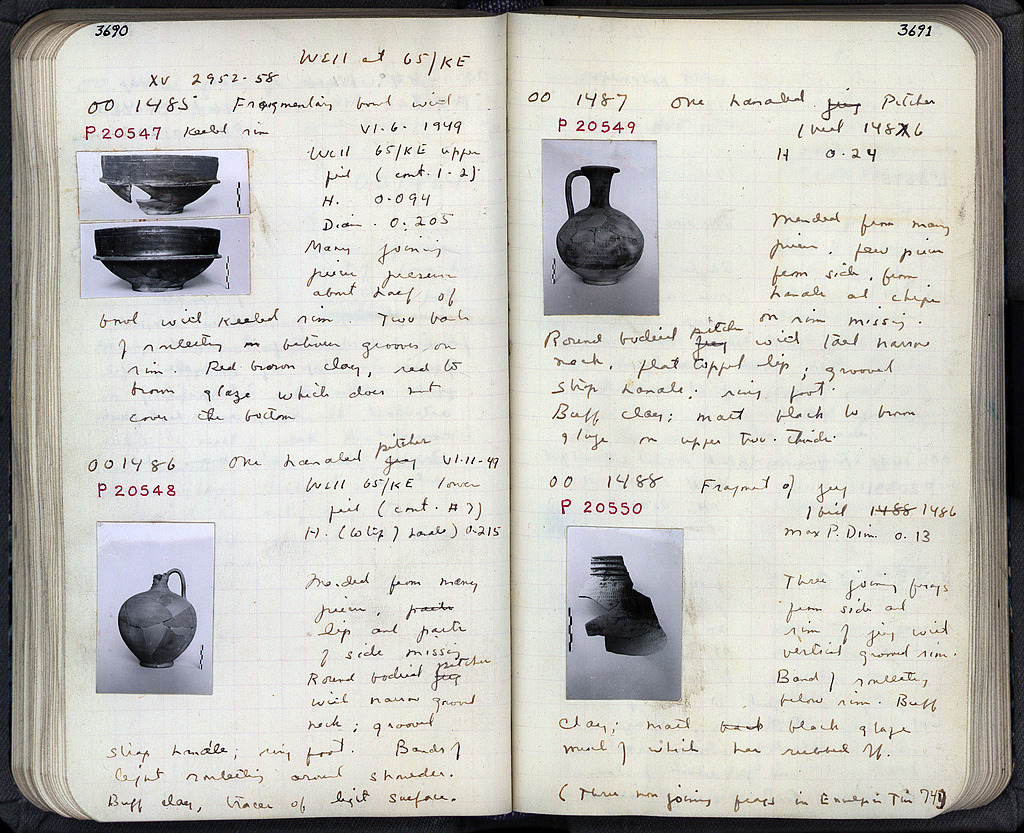 3690
Well at 65/KE
XV 2952-58
OO 1485 Fragmentary bowl with
P 20547 Keeled rim VI.6.1949
Well 65/KE upper
fill (cont. 1-2)
H. 0.094
Diam. 0.205
Many joining
pieces preserve
about half of
bowl with keeled rim. Two bands
of rouletting between grooves on
rim. Red-brown clay, red to
brown glaze which does not
cover the bottom
OO 1486 One handled jug pitcher VI-11-49
P 20548
Well 65/KE lower
fill (cont. #7)
H. (to top of handle) 0.215
Mended from many
pieces, parts
lip and parts
of side missing
Round bodied jug pitcher
with narrow grooved
neck; grooved
strap handle; ring foot. Bands of
light rouletting around shoulder.
Buff clay, traces of light surface.
3691
OO 1487 One handled jug Pitcher
P 20549
Ibid 1486
H 0.24
Mended from many
pieces, few pieces
from side, from
handle and chips
on rim missing.
Round bodied jug pitcher with tall narrow
neck, flat topped lip; grooved
strap handle; ring foot.
Buff clay; matt black to brown
glaze on upper two-thirds.
OO 1488 Fragment of jug
P 20550
Ibid 1488 1486
Max P. Dim. 0.13
Three joining frags
from side and
rim of jug with
vertical grooved rim.
Band of rouletting
below rim. Buff
clay; matt black glaze
much of which has rubbed off.
(Three non joining frags in Envelope in Tin 741)